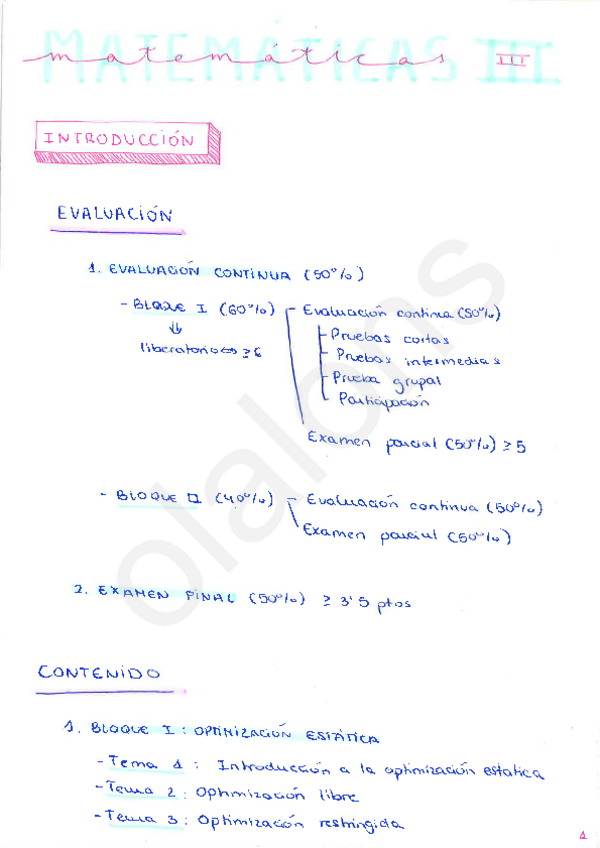 MATEMÁTICAS III
matemáticas III
INTRODUCCIÓN
EVALUACIÓN
1. EVALUACIÓN CONTINUA (50%)
- BLOQUE I (60%) - Evaluación continua (50%)
⇓
liberatorio ⇔ ≥ 6
- Pruebas cortas
- Pruebas intermedias
- Prueba grupal
- Participación
Examen parcial (50%) ≥ 5
- BLOQUE II (40%) - Evaluación continua (50%)
Examen parcial (50%)
2. EXAMEN FINAL (50%) ≥ 3'5 ptos
CONTENIDO
1. BLOQUE I: OPTIMIZACIÓN ESTÁTICA
- Tema 1: Introducción a la optimización estatica
- Tema 2: Optimización libre
- Tema 3: Optimización restringida
1
olalons